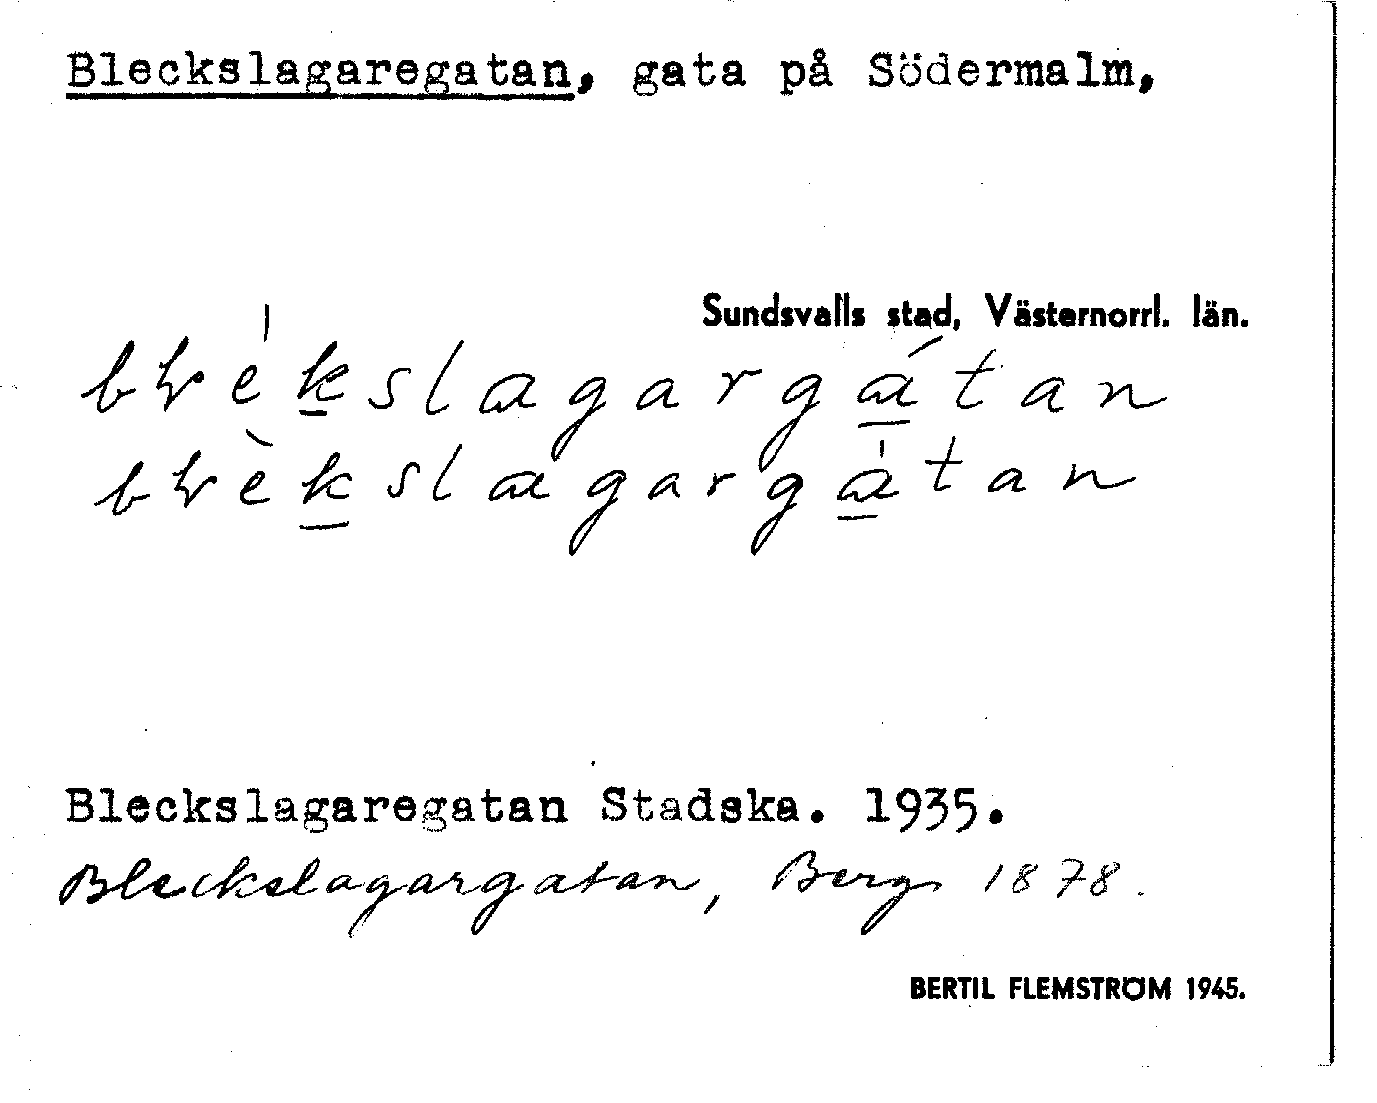 Bleckslagaregatan, gata på Södermalm,
Sundsvalls stad, Västernorrl. län.
blèkslagargátan
blèkslagargàtan
Bleckslagaregatan Stadska. 1935.
Bleckslagargatan, Berg 1878.
BERTIL FLEMSTRÖM 1945.